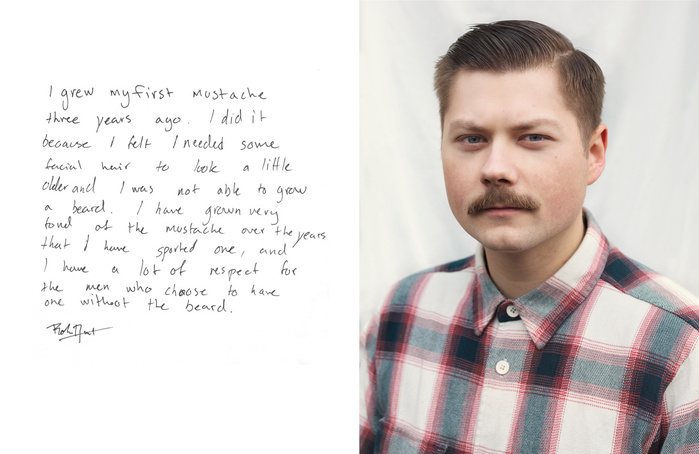 I grew my first mustache
three years ago. I did it
because I felt I needed some
facial hair to look a little
older and I was not able to grow
a beard. I have grown very
fond of the mustache over the years
that I have sported one, and
I have a lot of respect for
the men who choose to have
one without the beard.